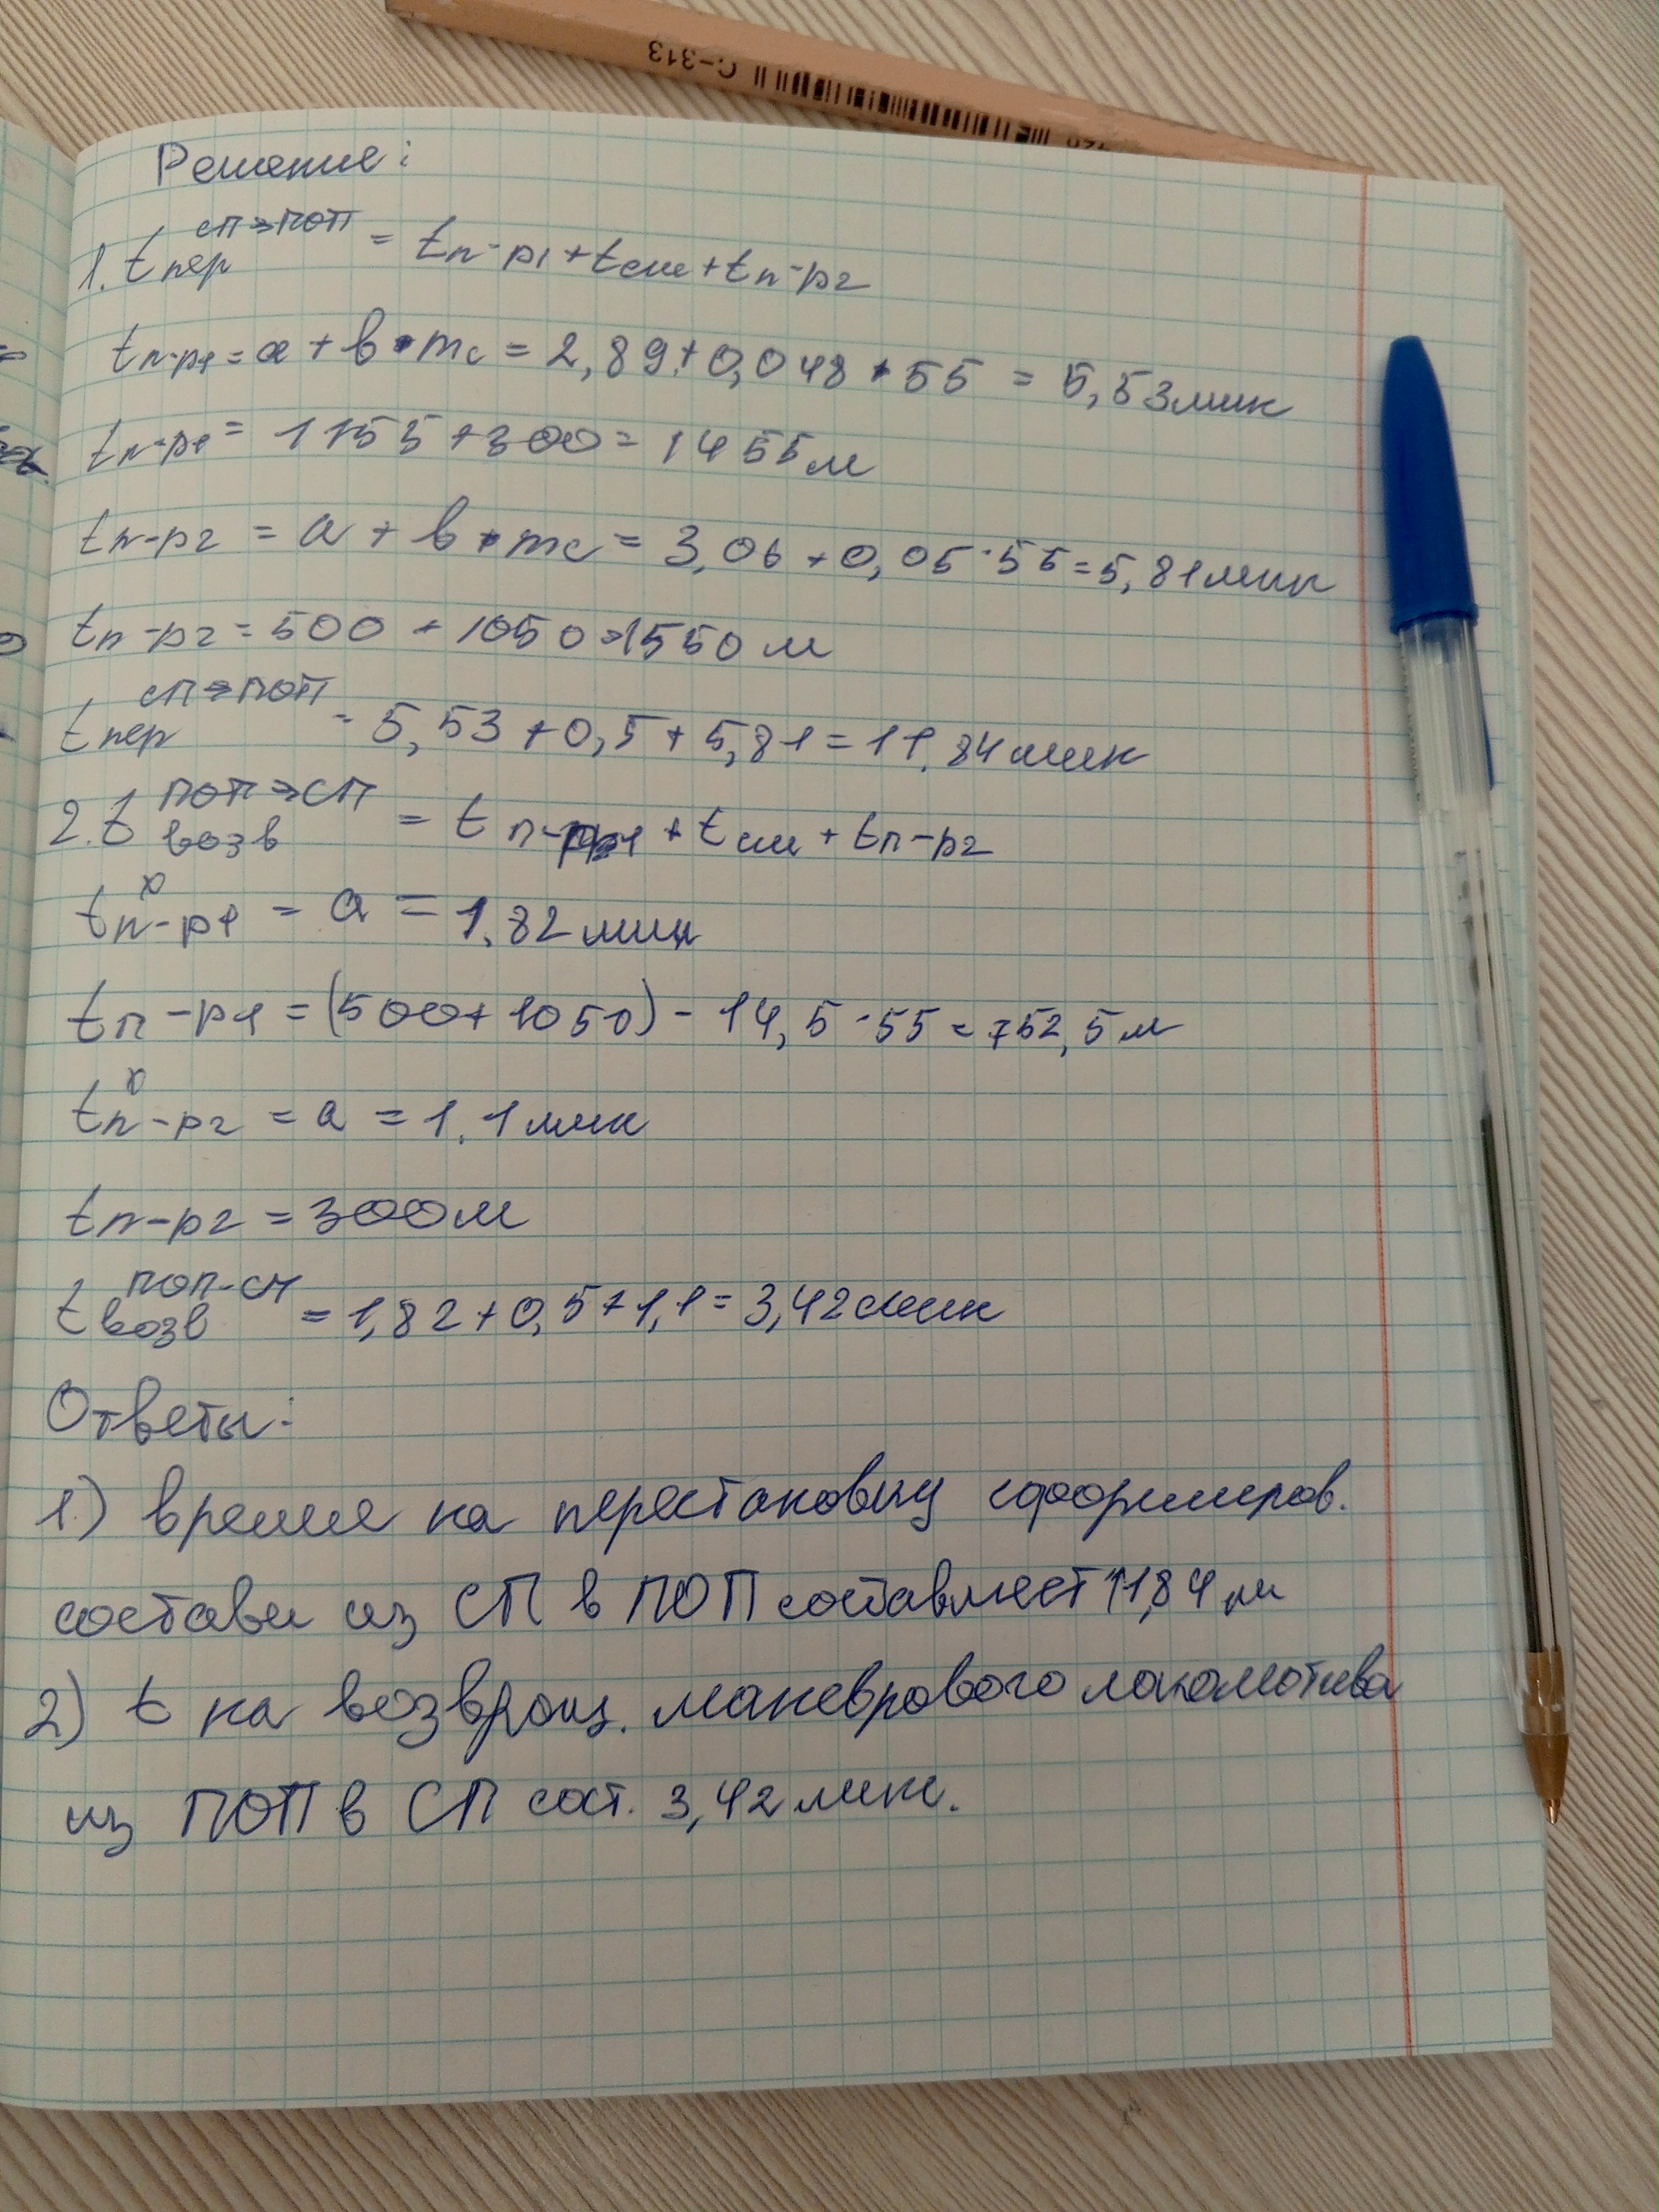 C-313
Решение:
1. t пер СП→ПОП = tп-р1 + tсм + tп-р2
tп-р1 = a + b • mc = 2,89 + 0,048 • 55 = 5,53мин
tп-р1 = 1155 + 300 = 1455м
tп-р2 = a + b • mc = 3,06 + 0,05 · 55 = 5,81мин
tп-р2 = 500 + 1050 = 1550м
t пер СП→ПОП = 5,53 + 0,5 + 5,81 = 11,84мин
2. t возв ПОП→СП = tп-р1 + tсм + tп-р2
t x п-р1 = a = 1,82мин
tп-р1 = (500 + 1050) - 14,5 · 55 = 752,5м
t x п-р2 = a = 1,1мин
tп-р2 = 300м
t возв ПОП-СП = 1,82 + 0,5 + 1,1 = 3,42мин
Ответы:
1) время на перестановку сформиров.
состава из СП в ПОП составляет 11,84 м
2) t на возвращ. маневрового локомотива
из ПОП в СП сост. 3,42мин.